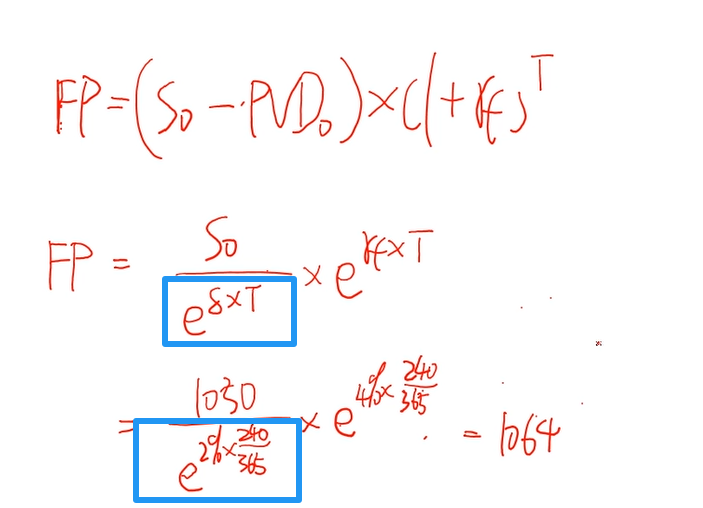 FP = (S₀ - PVD₀) × (1 + rf)^T
FP = S₀ / e^(δ×T) × e^(rf×T)
= 1030 / e^(2%×240/365) × e^(4%×240/365) = 1064